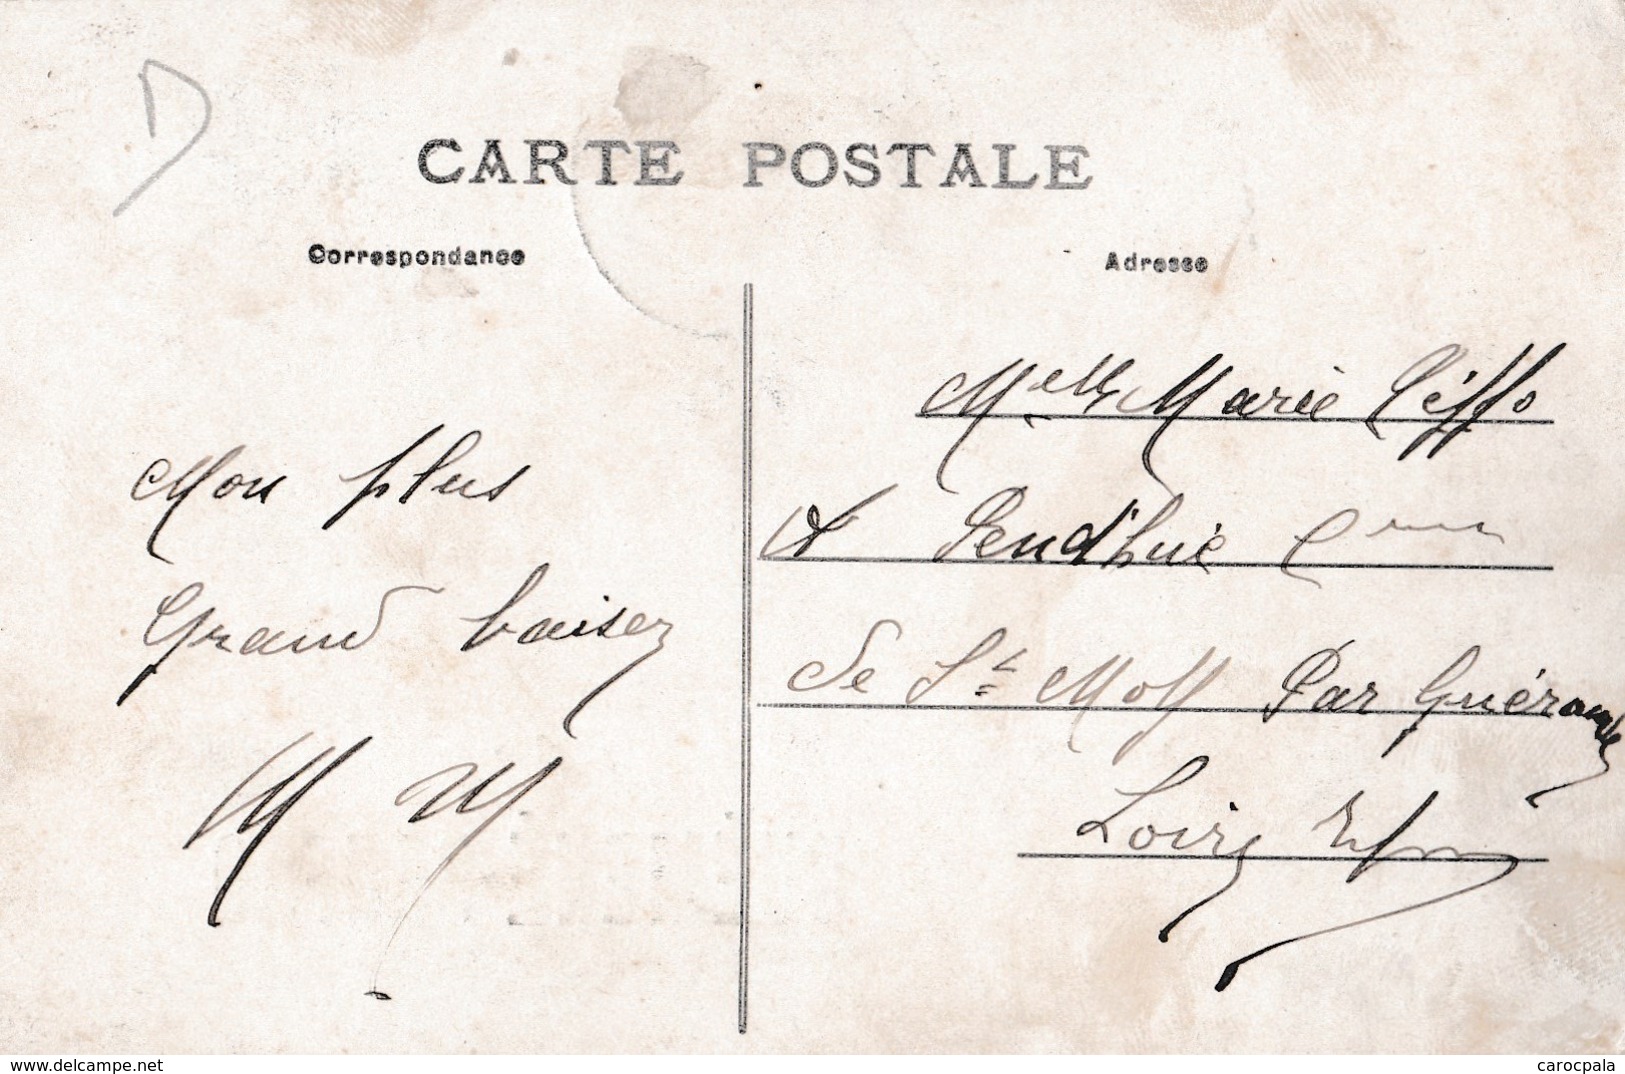 D
CARTE POSTALE
Correspondance
Adresse
Mon plus
Grand baiser
M M
Melle Marie
à Pend'huie Cne
De St Molf Par Guérande
Loire Infre
delcampe.net
carocpala